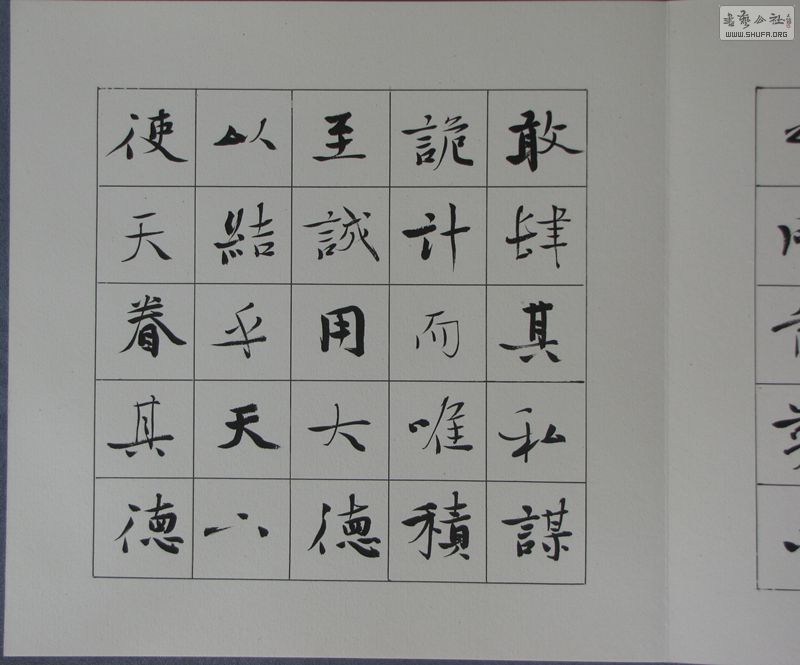 敢肆其私謀
詭計而唯積
至誠用大德
以結乎天心
使天眷其德
書藝公社
WWW.SHUFA.ORG